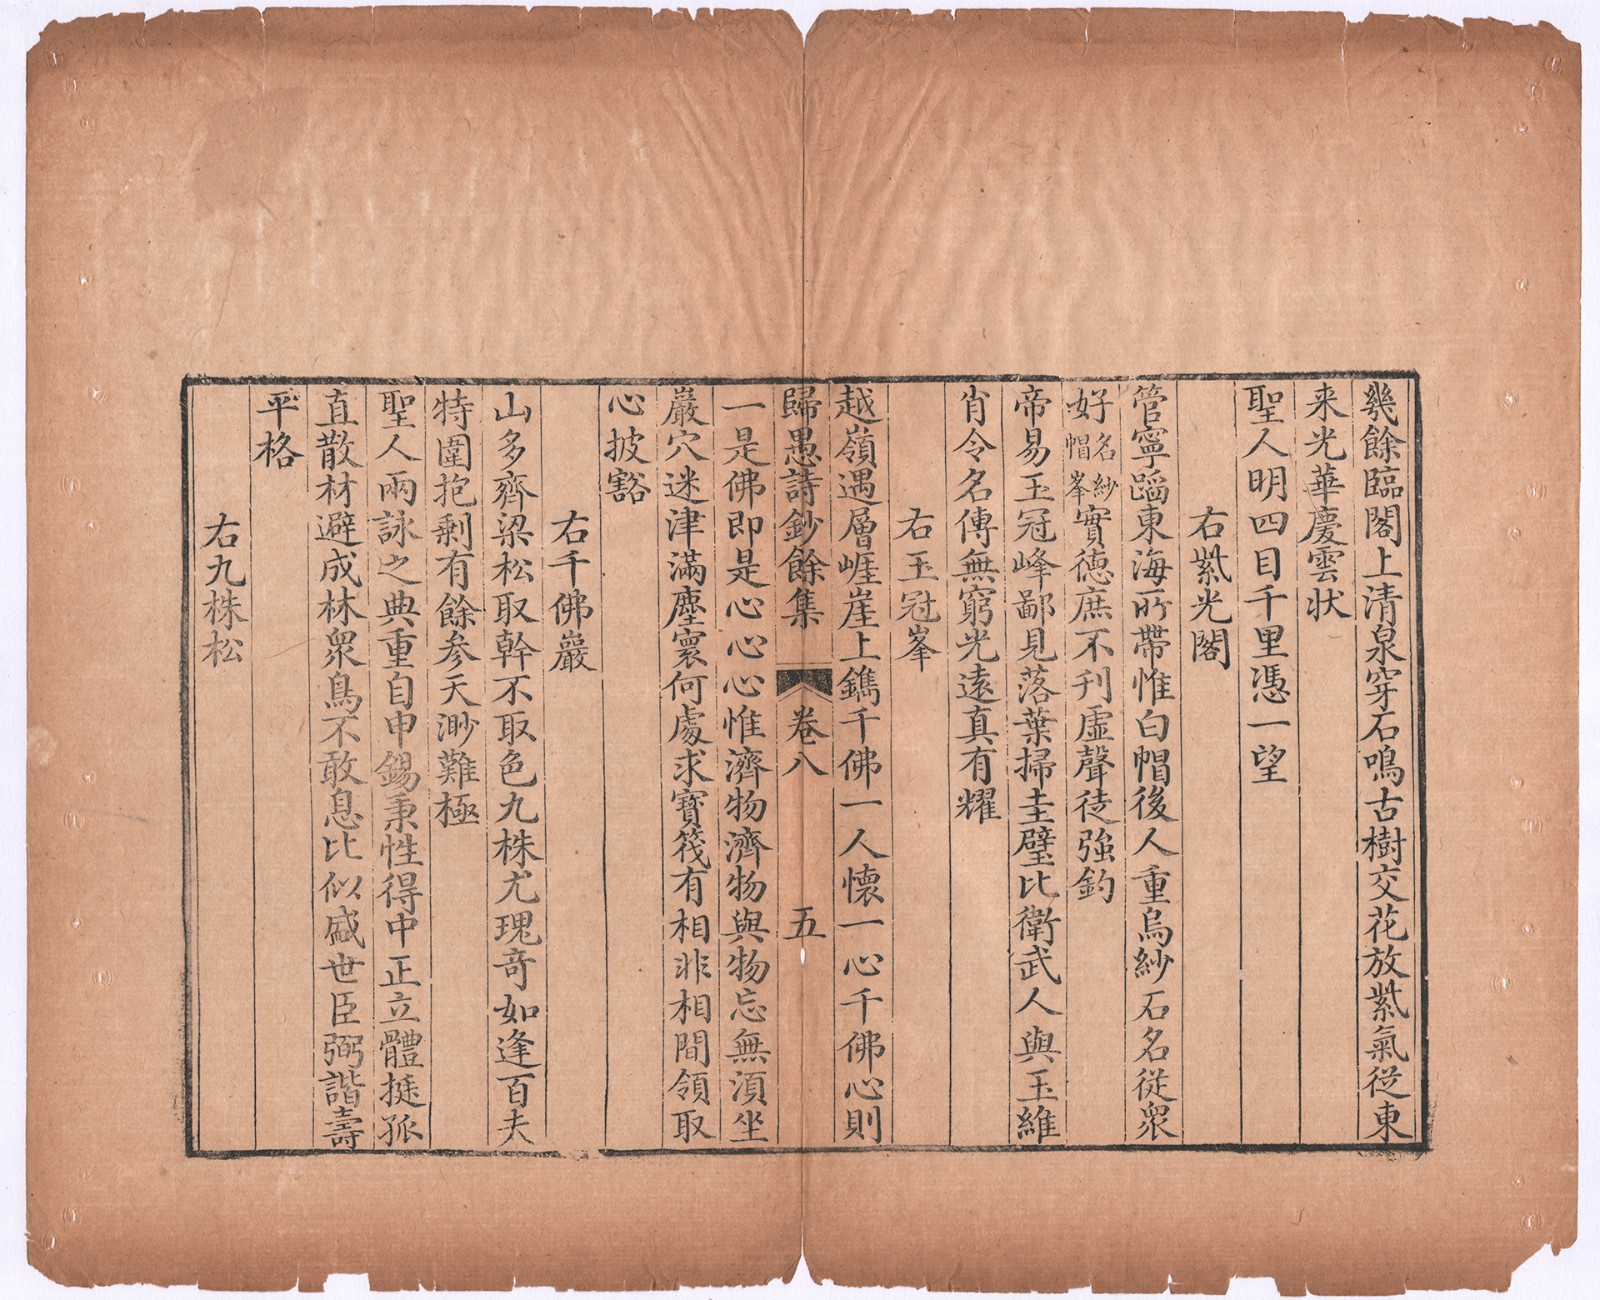 幾餘臨閣上清泉穿石鳴古樹交花放紫氣従東
来光華慶雲状
聖人明四目千里憑一望
右紫光閣
管寧蹈東海所帶惟白帽後人重烏紗石名従衆
好名紗帽峯實德庶不刊虛聲徒強釣
帝易玉冠峰鄙見落葉掃圭璧比衛武人與玉維
肖令名傳無窮光遠真有耀
右玉冠峯
越嶺遇層崕崖上鐫千佛一人懷一心千佛心則
歸愚詩鈔餘集 卷八 五
一是佛即是心心心惟濟物濟物與物忘無湏坐
巖穴迷津滿塵寰何處求寶筏有相非相間領取
心披豁
右千佛巖
山多齊梁松取幹不取色九株尤瑰奇如逢百夫
特圍抱剩有餘参天渺難極
聖人兩詠之典重自申錫秉性得中正立體挺孤
直散材避成林衆鳥不敢息比似盛世臣弼諧壽
平格
右九株松